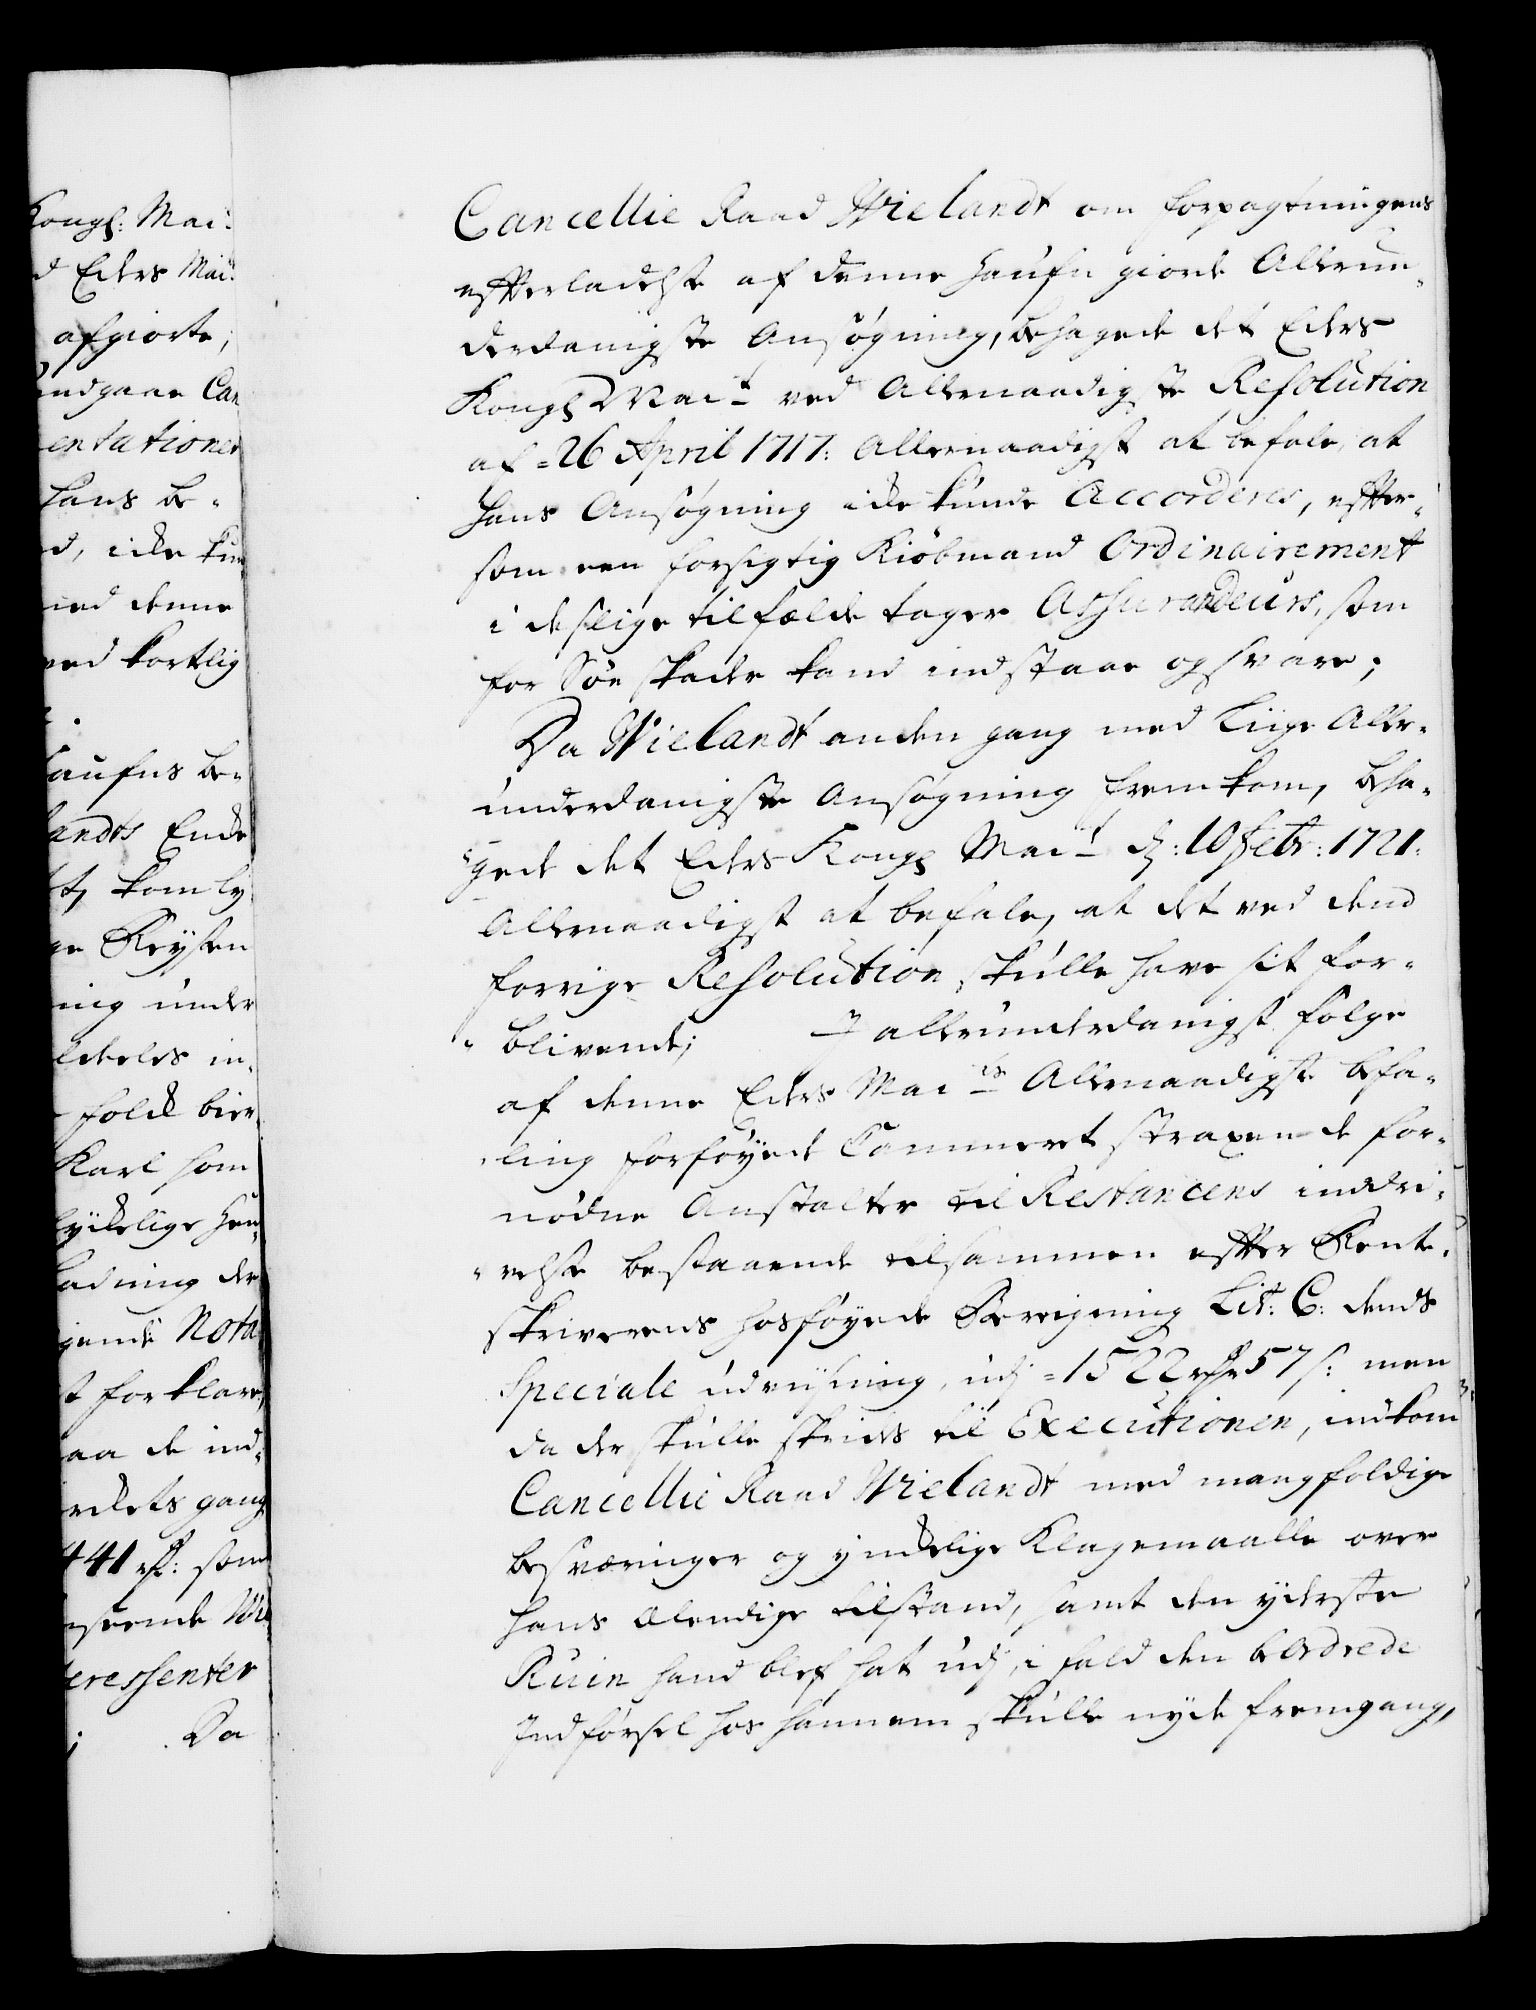 Kongl: Mai:
d Eders Mai:
afgiorte;
endgaar Can
entationer
hans be-
d, icke kun
med denne
ved kortlig
aufns be-
andts Ende
t, kom ey
ge Reysen
ning under
ldeles in-
folck bier
Karl som
lyckelige hen-
adning der
gende Nota
t forklare,
aa de ind-
rckets gang
441 rd: som
nseende Wie
teressenter
Da
Cancellie Raad Wielandt om forpagtningens
efterladelse af denne haufn giorde Allerun-
derdanigste Ansøgning, behagede det Eders
Kongl Mait ved Allernaadigste Resolution
af 26 April 1717: Allernaadigst at befale, at
hans Ansøgning icke kunde Accorderes, efter-
som een forsigtig Kiøbmand Ordinairement
i deslige tilfælde tager Assurandeurs, som
for Søe skade kand indstaae og svare;
Da Wielandt anden gang med Liige Aller-
underdanigste Ansøgning fremkom, beha-
gede det Eders Kongl Mait d: 10 Febr: 1721:
Allernaadigst at befale, at det ved dend
forrige Resolution skulle have sit for-
blivende; I allerunderdanigst følge
af denne Eders Maits Allernaadigste befa-
ling forføyede Cammeret straxen de for-
nødne Anstalter til Restancens inddri-
velse bestaaende tilsammen efter Rente-
skriverens hosføyede Beregning Lit: C: dends
Speciale udvisning, udj 1522 rdr 57 s: men
da der skulle skrides til Executionen, indkom
Cancellie Raad Wielandt med mangfoldige
besværinger og ynckelige Klagemaalle over
hans Elendige tilstand, samt den yderste
Ruin hand blef sat udj, i fald den beordrede
Indførsel hos hannem skulle nyde fremgang,